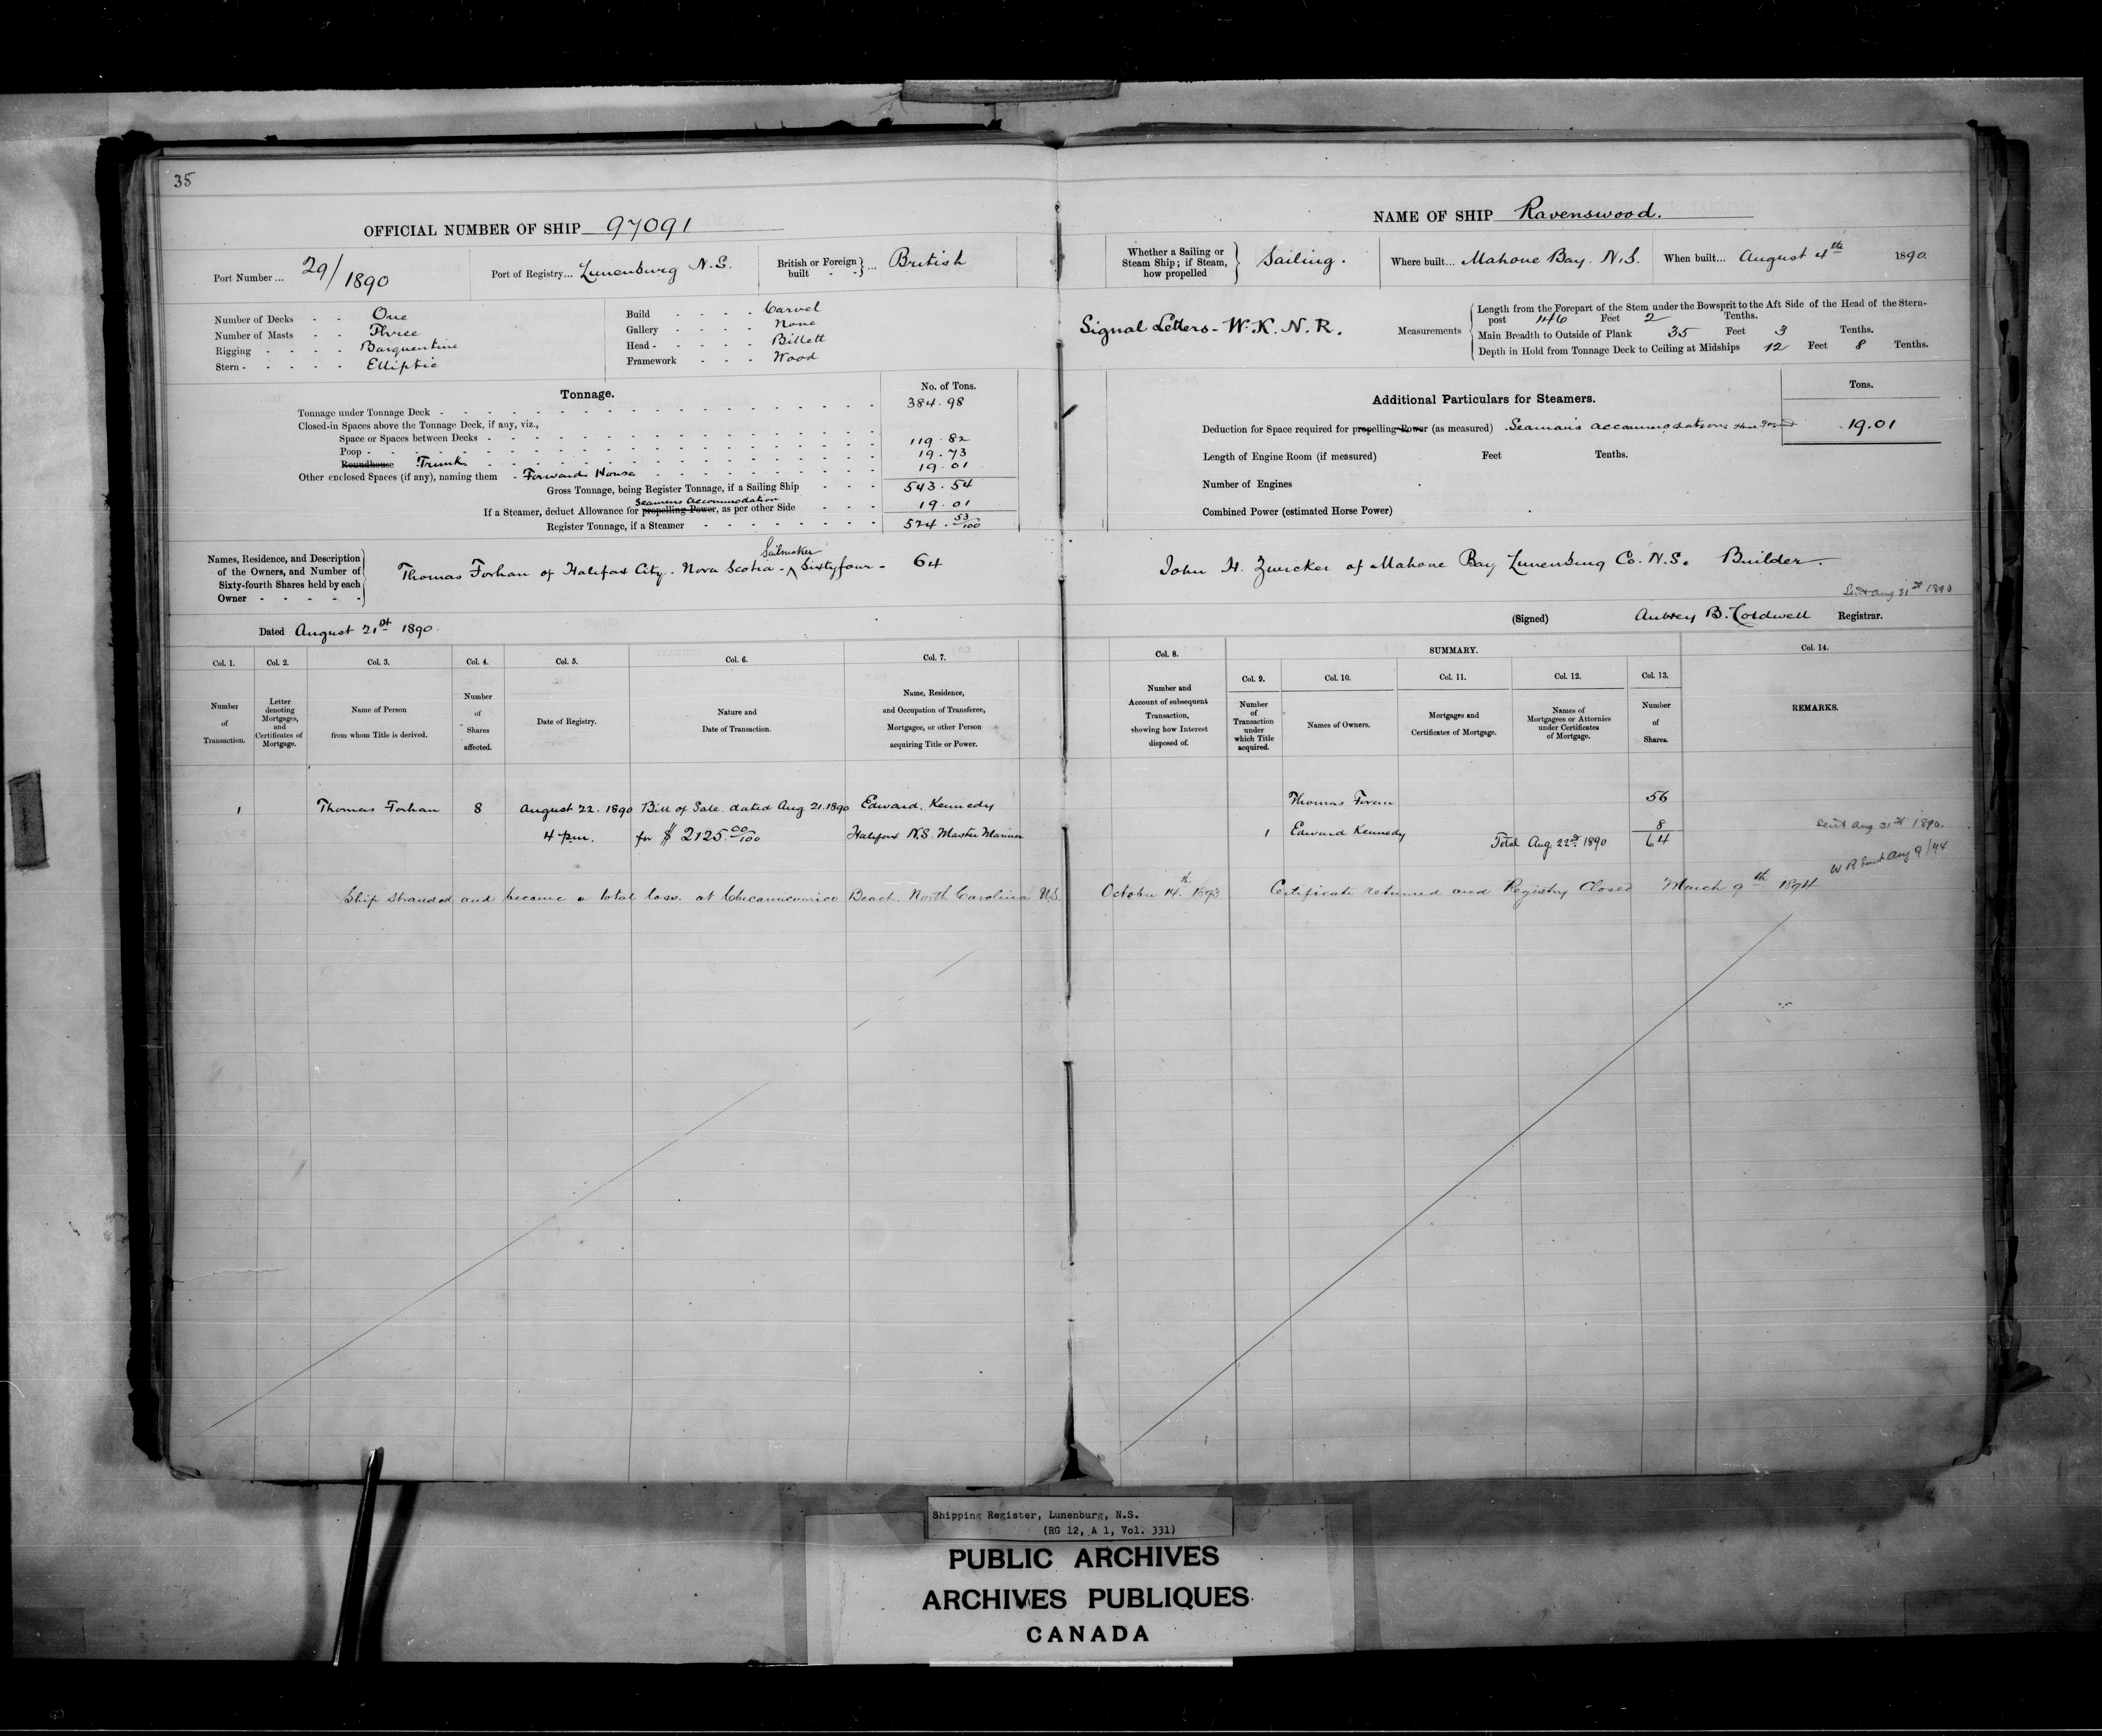 35
OFFICIAL NUMBER OF SHIP 97091
Port Number ... 29/1890
Port of Registry... Lunenburg N.S.
British or Foreign built - - } ... British
Number of Decks - - One
Number of Masts - - Three
Rigging - - - - Barquentine
Stern - - - - - Elliptic
Build - - - - Carvel
Gallery - - - - None
Head - - - - - Billett
Framework - - - Wood
Tonnage.
No. of Tons.
Tonnage under Tonnage Deck - 384.98
Closed-in Spaces above the Tonnage Deck, if any, viz.,
Space or Spaces between Decks - 119.82
Poop - 19.73
Roundhouse Trunk - 19.01
Other enclosed Spaces (if any), naming them - Forward House
Gross Tonnage, being Register Tonnage, if a Sailing Ship - - - 543.54
Seamens accommodation
If a Steamer, deduct Allowance for propelling Power, as per other Side - - - 19.01
Register Tonnage, if a Steamer - 524.53/100
Names, Residence, and Description of the Owners, and Number of Sixty-fourth Shares held by each Owner - - - - -
Sailmaker
Thomas Forhan of Halifax City. Nova Scotia - ^ Sixtyfour - 64
Dated August 21st 1890.
NAME OF SHIP Ravenswood.
Whether a Sailing or Steam Ship; if Steam, how propelled } Sailing.
Where built... Mahone Bay. N.S.
When built... August 4th 1890.
Signal Letters - W.K.N.R.
Measurements
Length from the Forepart of the Stem under the Bowsprit to the Aft Side of the Head of the Stern-
post 146 Feet 2 Tenths.
Main Breadth to Outside of Plank 35 Feet 3 Tenths.
Depth in Hold from Tonnage Deck to Ceiling at Midships 12 Feet 8 Tenths.
Additional Particulars for Steamers.
Tons.
Deduction for Space required for propelling Power (as measured) Seaman's accommodations 19.01
Length of Engine Room (if measured) Feet Tenths.
Number of Engines
Combined Power (estimated Horse Power)
John H. Zwicker of Mahone Bay Lunenburg Co. N.S. Builder.
Sent Aug 31st 1890
(Signed) Aubrey B. Coldwell Registrar.
Col. 1. Number of Transaction.
Col. 2. Letter denoting Mortgages, and Certificates of Mortgage.
Col. 3. Name of Person from whom Title is derived.
Col. 4. Number of Shares affected.
Col. 5. Date of Registry.
Col. 6. Nature and Date of Transaction.
Col. 7. Name, Residence, and Occupation of Transferee, Mortgagee, or other Person acquiring Title or Power.
Col. 8. Number and Account of subsequent Transaction, showing how Interest disposed of.
SUMMARY.
Col. 9. Number of Transaction under which Title acquired.
Col. 10. Names of Owners.
Col. 11. Mortgages and Certificates of Mortgage.
Col. 12. Names of Mortgagees or Attornies under Certificates of Mortgage.
Col. 13. Number of Shares.
Col. 14. REMARKS.
1 Thomas Forhan 8 August 22. 1890 Bill of Sale dated Aug 21. 1890 Edward Kennedy
4 pm. for $2125.00/100 Halifax N.S. Master Mariner
Thomas Foran 56
1 Edward Kennedy 8
Total Aug. 22nd 1890 64
Sent Aug 31st 1890.
W R Sent Aug 9/94
Ship stranded and became a total loss. at Chicamicomico Beach. North Carolina U.S. October 14th. 1893 Certificate returned and Registry Closed March 9th 1894
Shipping Register, Lunenburg, N.S.
(RG 12, A 1, Vol. 331)
PUBLIC ARCHIVES
ARCHIVES PUBLIQUES
CANADA